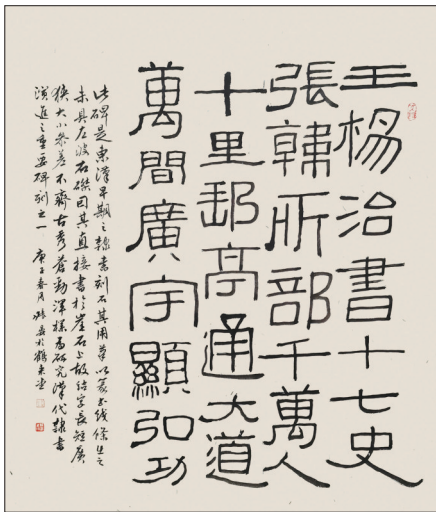 王楊治書十七史
張韓所部千萬人
十里郵亭通大道
萬間廣宇顯弘功
此碑是東漢早期之隸書刻石其用筆以篆書線條出之
未具左波右磔因其直接書於崖石上故結字長短廣
狹大小參差不齊古秀蒼勁渾樸為研究漢代隸書
演進之重要碑刻之一 庚子春月 於鶴來堂